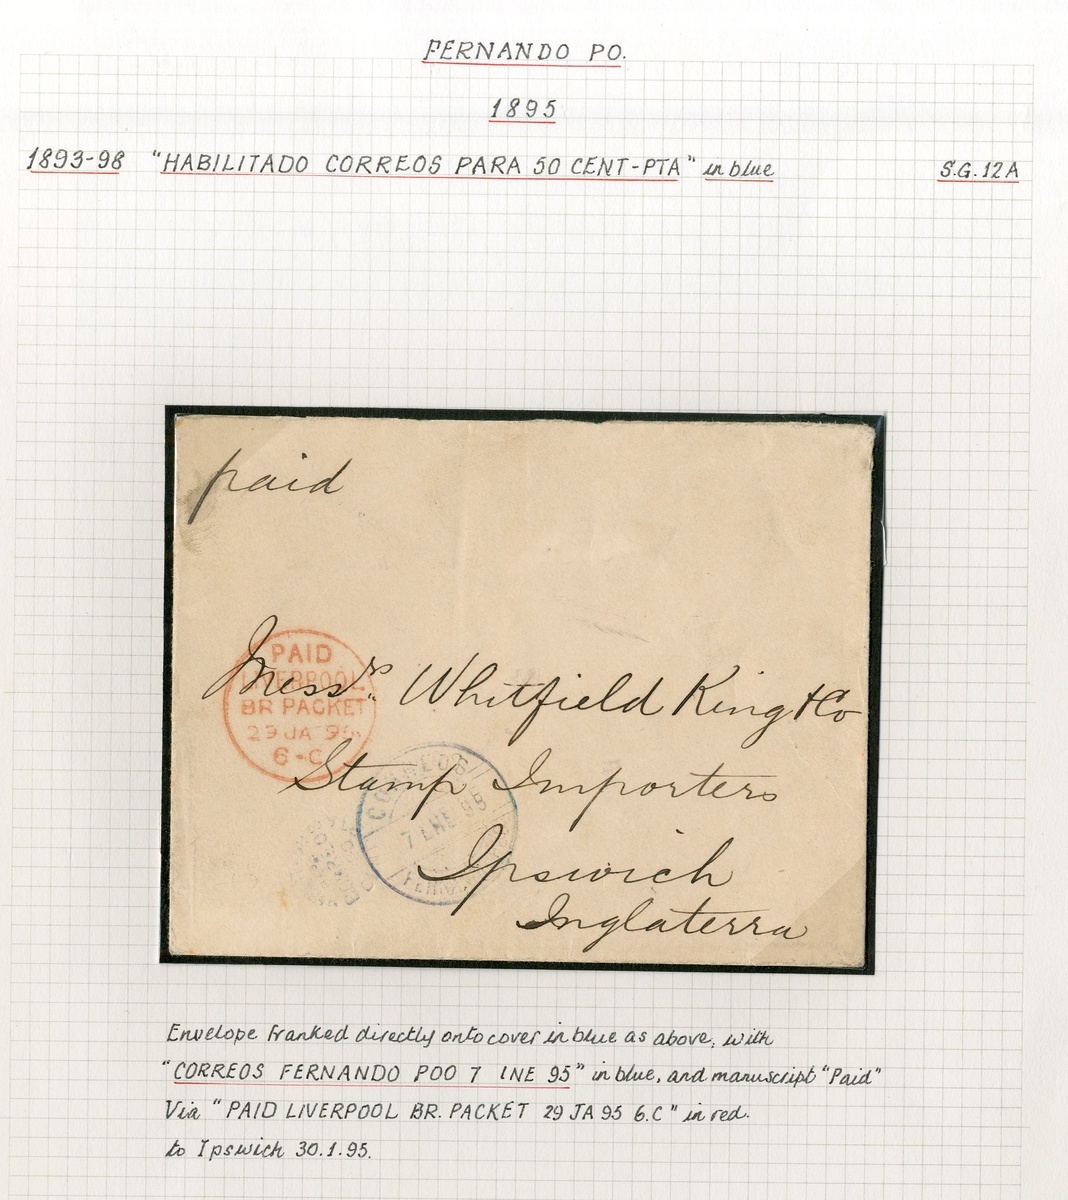 FERNANDO PO.
1895
1893-98 "HABILITADO CORREOS PARA 50 CENT-PTA" in blue S.G. 12A
paid
PAID
LIVERPOOL
BR PACKET
29 JA 95
6-C
Messrs. Whitfield King & Co
Stamp Importers
Ipswich
Inglaterra
CORREOS
7 ENE 95
Envelope franked directly onto cover in blue as above, with
"CORREOS FERNANDO POO 7 INE 95" in blue, and manuscript "Paid"
Via "PAID LIVERPOOL BR. PACKET 29 JA 95 6.C" in red.
to Ipswich 30.1.95.